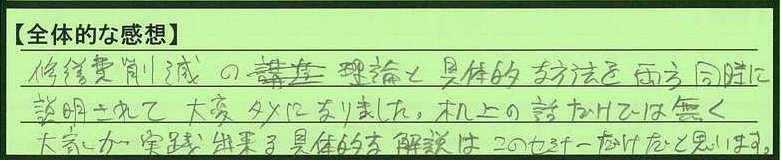 【全体的な感想】
修繕費削減の講座理論と具体的な方法を両方同時に
説明されて大変タメになりました。机上の話だけでは無く
大家しか実践出来る具体的な解説はこのセミナーだけだと思います。